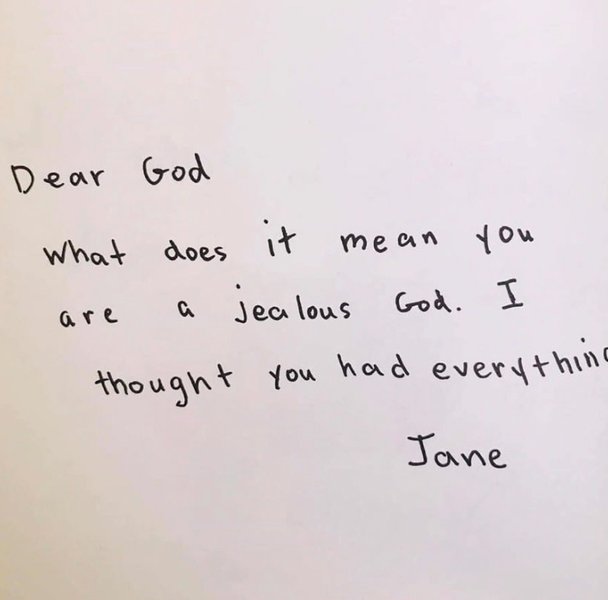 Dear God
What does it mean you
are a jealous God. I
thought you had everything
Jane